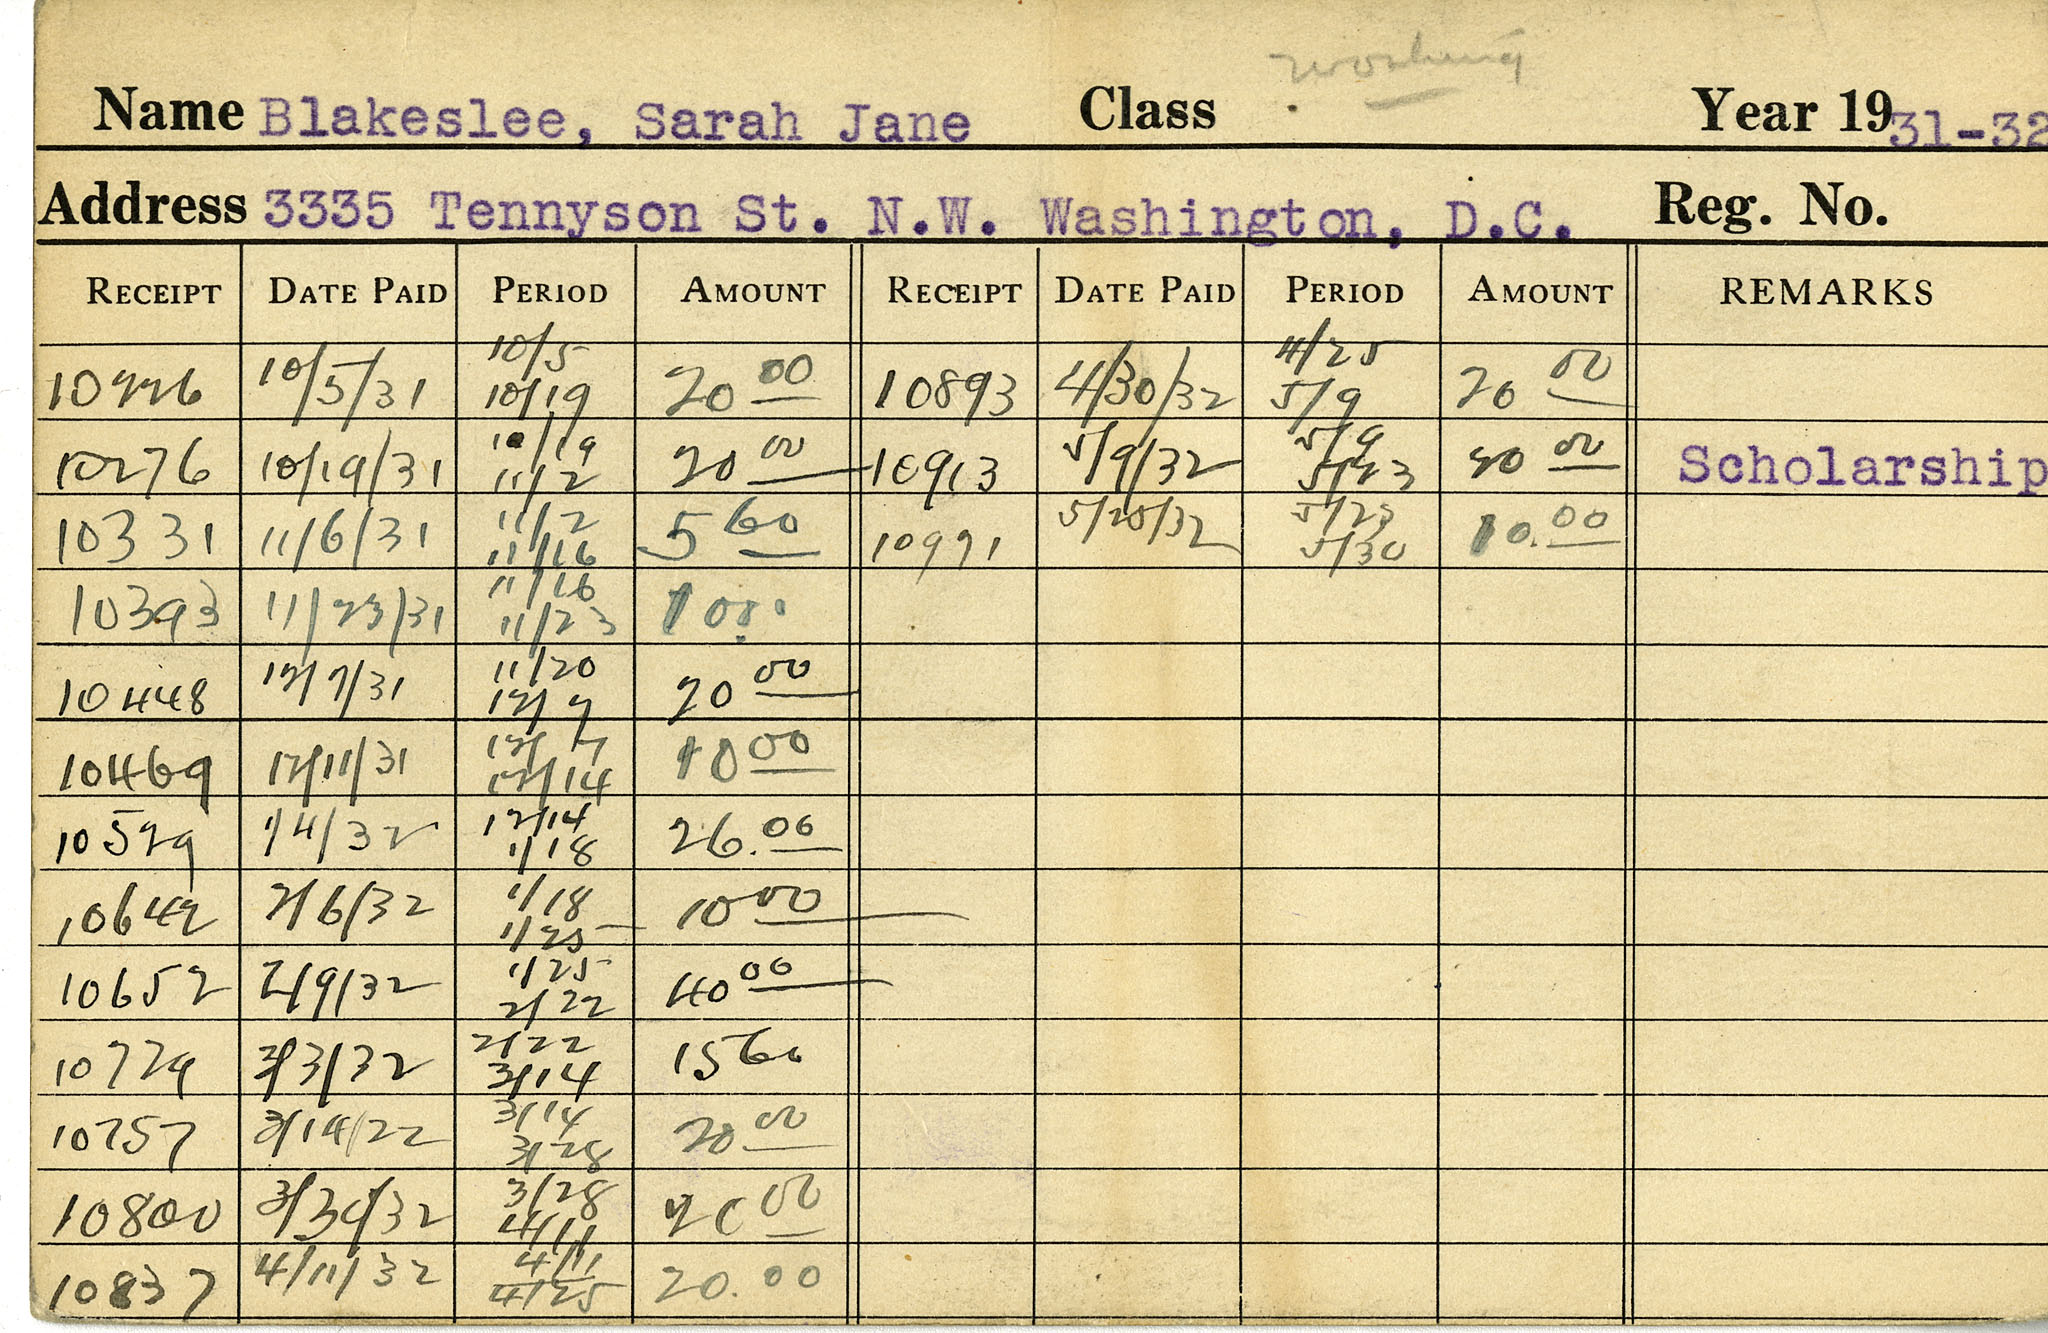 Working
Name Blakeslee, Sarah Jane Class Year 1931-32
Address 3335 Tennyson St. N.W. Washington, D.C. Reg. No.
RECEIPT DATE PAID PERIOD AMOUNT RECEIPT DATE PAID PERIOD AMOUNT REMARKS
10/5 4/25
10226 10/5/31 10/19 20 00 10893 4/30/32 5/9 20 00
10/19 5/9
10276 10/19/31 11/2 20 00 10913 5/9/32 5/23 20 00 Scholarship
11/2 5/23
10331 11/6/31 11/16 5 60 10971 5/28/32 5/30 10.00
11/16
10393 11/23/31 11/23
11/20
10448 12/7/31 12/7 20 00
12/7
10469 12/11/31 12/14 10 00
12/14
10529 1/4/32 1/18 26.00
1/18
10642 2/6/32 1/25 10 00
1/25
10652 2/9/32 2/22 40 00
2/22
10729 3/3/32 3/14 15 60
3/14
10757 3/14/22 3/28 20 00
3/28
10800 3/30/32 4/11 20 00
4/11
10837 4/11/32 4/25 20.00